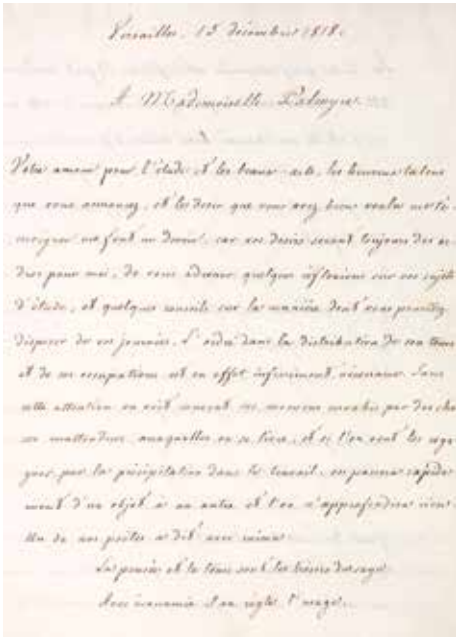 Versailles, 15 décembre 1818.
A Mademoiselle Palmyre.
Votre amour pour l'étude et les beaux-arts, les heureux talens
que vous annoncez, et les desirs que vous avez bien voulu me té-
moigner me font un devoir, car vos desirs seront toujours des or-
dres pour moi, de vous adresser quelques réflexions sur vos sujets
d'étude, et quelques conseils sur la manière dont vous pourrez
disposer de vos journées. L'ordre dans la distribution de son tems
et de ses occupations est en effet infiniment nécessaire. Sans
cette attention on voit souvent ses momens par des cho-
ses inattendues auxquelles on se livre, et si l'on veut les rega-
gner par la précipitation dans le travail, on passera rapide-
ment d'un objet à un autre et l'on n'approfondira rien.
Un de nos poëtes a dit avec raison:
La pensée et le tems sont les trésors du sage
Avec économie il en règle l'usage.